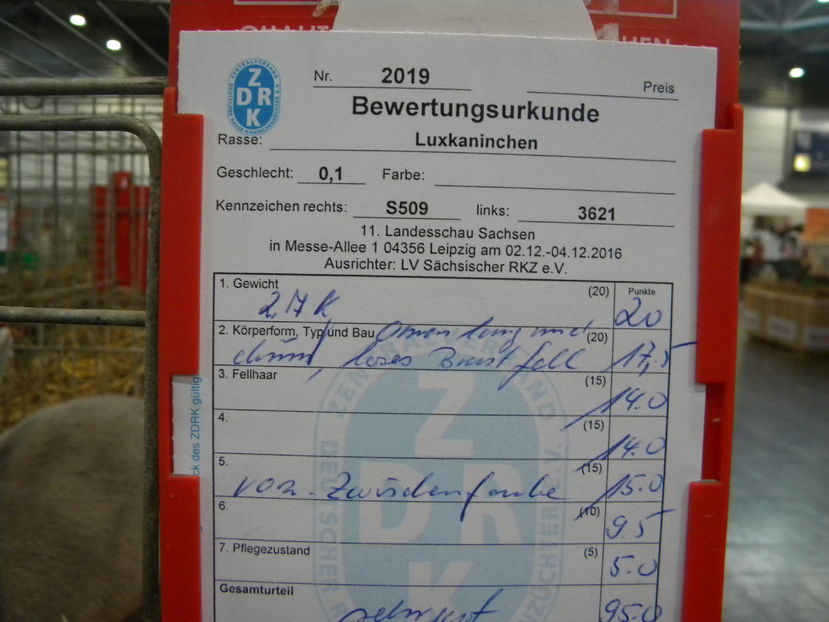 Nr. 2019 Preis
Bewertungsurkunde
Rasse: Luxkaninchen
Geschlecht: 0,1 Farbe:
Kennzeichen rechts: S509 links: 3621
11. Landesschau Sachsen
in Messe-Allee 1 04356 Leipzig am 02.12.-04.12.2016
Ausrichter: LV Sächsischer RKZ e.V.
1. Gewicht (20) Punkte
2,17 K 20
2. Körperform, Typ und Bau Ohren lang und (20)
dünn, loses Brustfell 17,5
3. Fellhaar (15)
14.0
4. (15)
14.0
5. (15)
vorz. Zwischenfarbe 15.0
6. (10)
9.5
7. Pflegezustand (5)
5.0
Gesamturteil
sehr gut 95.0
ck des ZDRK gültig
ZDRK